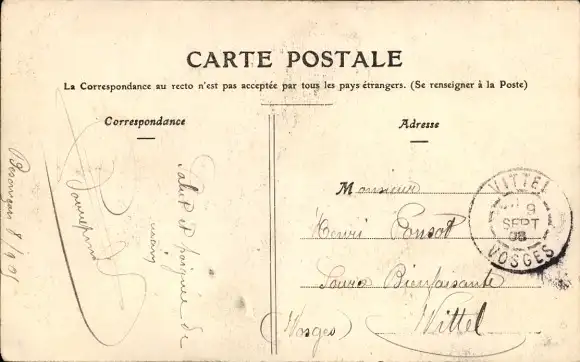 CARTE POSTALE
La Correspondance au recto n'est pas acceptée par tous les pays étrangers. (Se renseigner à la Poste)
Correspondance
Adresse
Salut & poignée de
main
Monsieur
Henri Ponsot
Source Bienfaisante
(Vosges) Vittel
VITTEL
9
SEPT
08
VOSGES